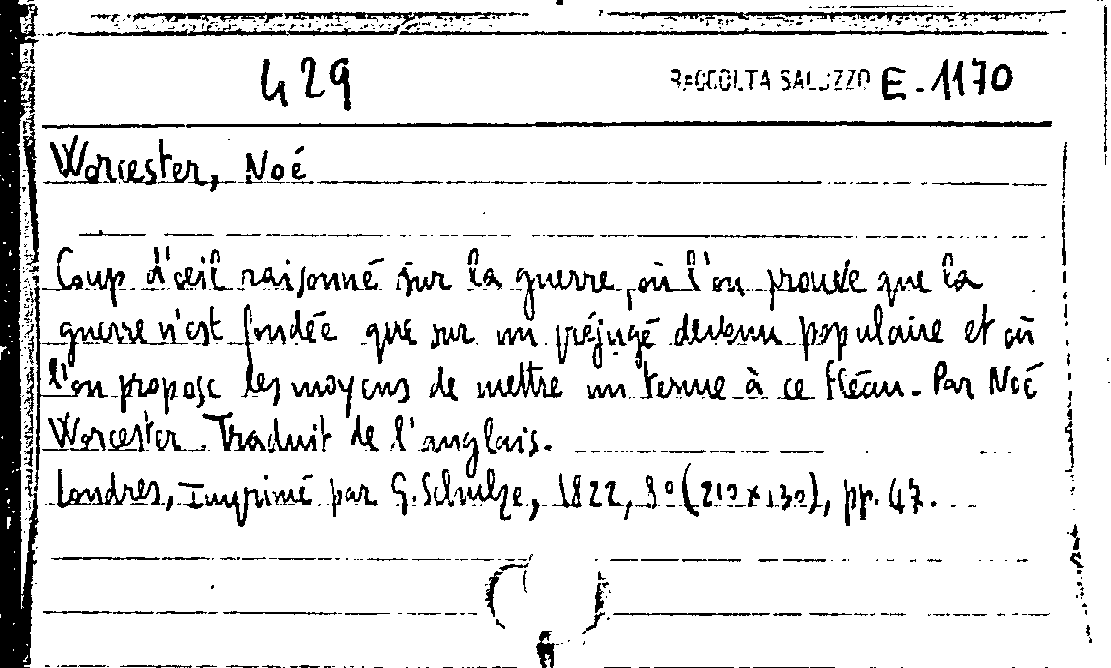 429 RACCOLTA SALUZZO E. 1170
Worcester, Noé
Coup d'œil raisonné sur la guerre, où l'on prouve que la
guerre n'est fondée que sur un préjugé devenu populaire et où
l'on propose les moyens de mettre un terme à ce fléau. Par Noé
Worcester. Traduit de l'anglais.
Londres, Imprimé par G. Schulze, 1822, 8º (210x130), pp. 47.